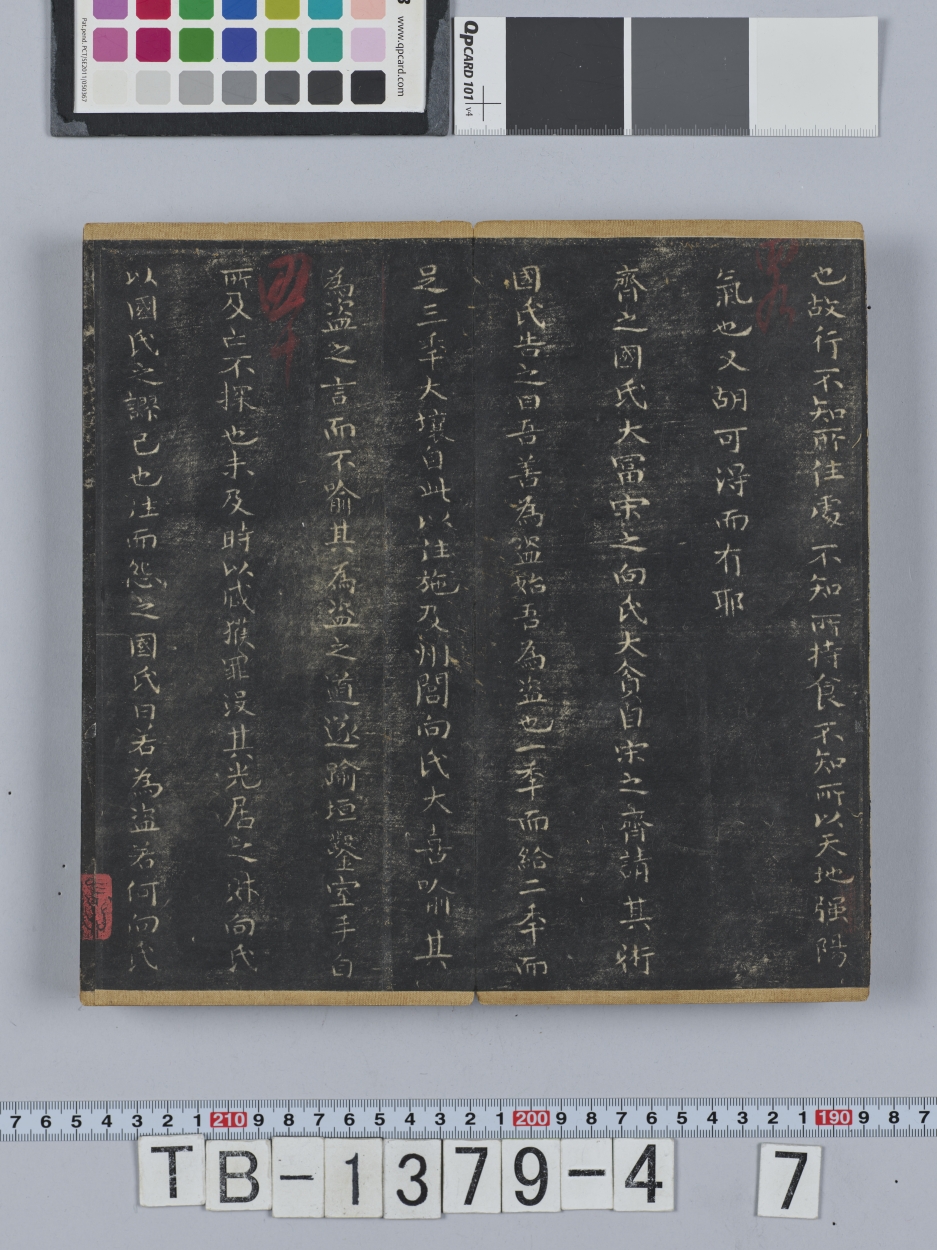 也故行不知所往處不知所持食不知所以天地强陽
氣也又胡可得而有耶
齊之國氏大富宋之向氏大貧自宋之齊請其術
國氏告之曰吾善為盜始吾為盜也一年而給二年而
足三年大壤自此以往施及州閭向氏大喜喻其
為盜之言而不喻其為盜之道遂踰垣鑿室手目
所及亡不探也未及時以贓獲罪沒其先居之財向氏
以國氏之謬已也往而怨之國氏曰若為盜若何向氏
www.qpcard.com
Pat.pend. PCT/SE2011/050367
QPCARD 101 v4
7 6 5 4 3 2 1 210 9 8 7 6 5 4 3 2 1 200 9 8 7 6 5 4 3 2 1 190 9 8 7
TB-1379-4 7